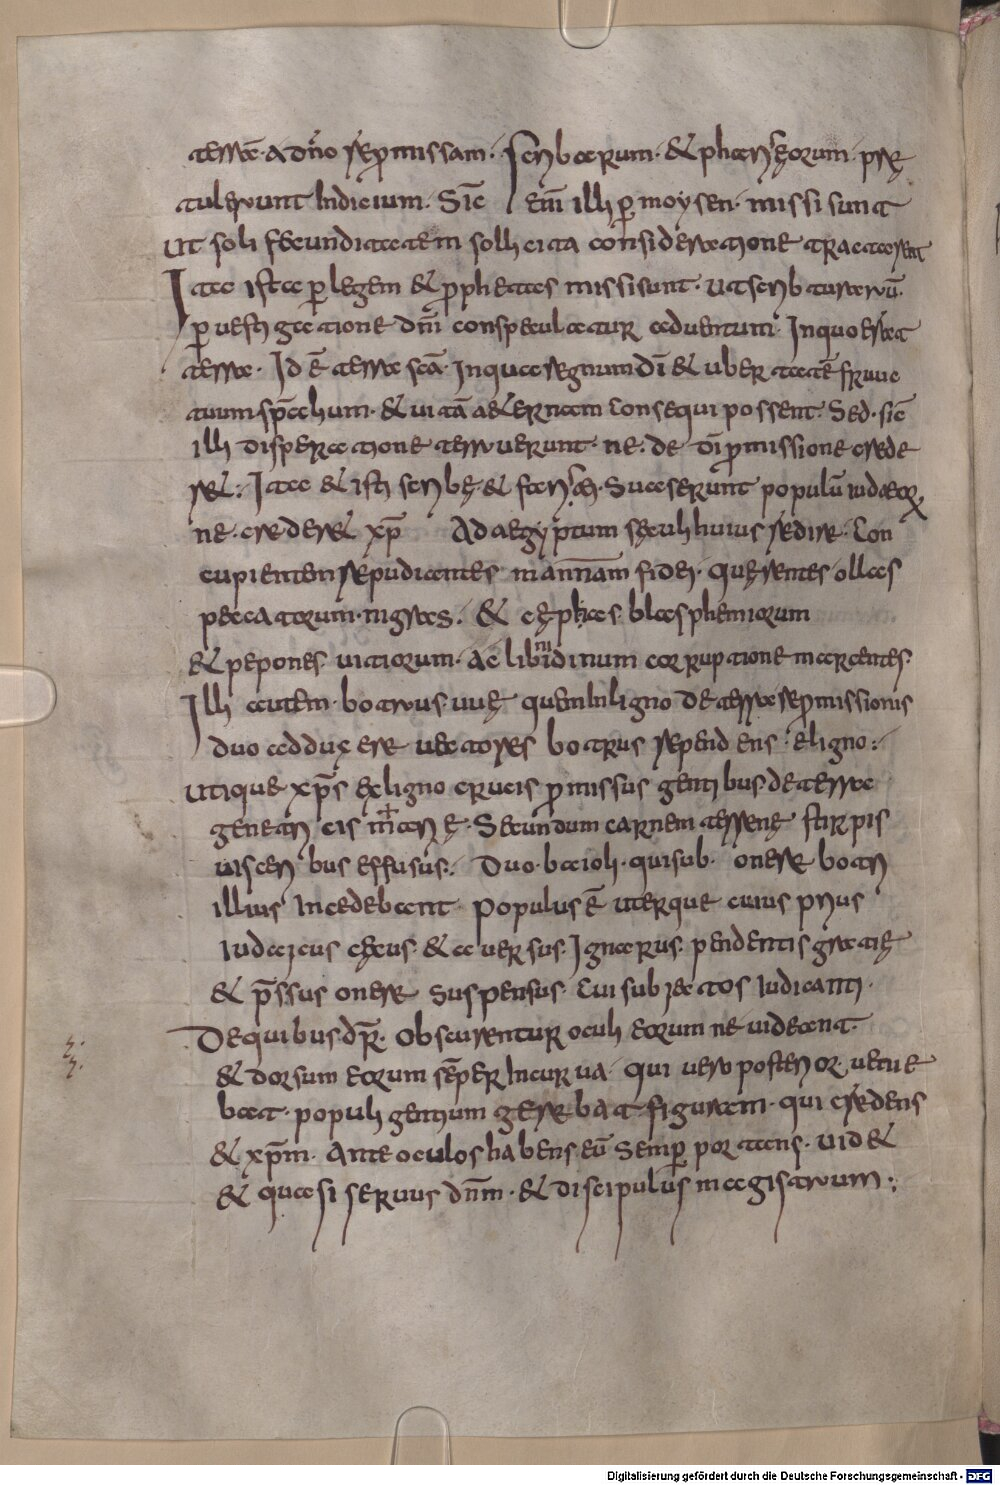 terrā a dn̄o repromissam. Scribarum. & pharisęorum prę
tulerunt Indicium. Sic̄ em̄ illi ꝑ moysen. missi sunt
ut soli fecunditatem sollicita consideratione tractarent
Ita istae ꝑ legem & prophetas missi sunt. ut scribaturarū.
ꝑ uestigatione dn̄i conspecul&ur aduentum. In quo erat
terra. Id ē terra sc̄a. In qua regnum dī & ubertatē fructu
tuum spītalium. & uitā aeternam consequi possent. Sed. sic̄
illi disperatione terruerunt. ne. de dī promissione crede
r&. Ita & isti scribę & farisęi. Suaserunt populū iudaeoꝝ
ne. creder& xp̄o Ad aegyptum sęculi huius redire. Con
cupientem repudiantes mannam fidei. quęrentes ollas
peccatorum nigras. & cępas blasphemiorum
& pepones uitiorum. ac libidinum corruptione marcentes.
Illi autem. botrus uuę quem In ligno de terra repromissionis
duo adduxere uectores botrus rependens e ligno.
utique xp̄s ex ligno crucis promissus gentibus de terra
genetricis marię. Secundum carnem terrenę stirpis
uisceribus effusus. Duo baioli. qui sub. onere botri
illius Incedebant populus ē uterque cuius prius
Iudaicus cęcus. & auersus. Ignarus. pendentis gratię
& pr̄ssus onere suspensus. Cui subiectos Iudicanti.
De quibus dr̄. Obscurentur oculi eorum ne uideant.
& dorsum eorum sēper Incurua. qui uero posterior ueni
bat. populi gentium gerebat figuram. qui credens
& xp̄m. Ante oculos habens eū semꝑ portans. uid&
& quasi seruus dn̄m. & discipulus magistrum.
Digitalisierung gefördert durch die Deutsche Forschungsgemeinschaft - DFG